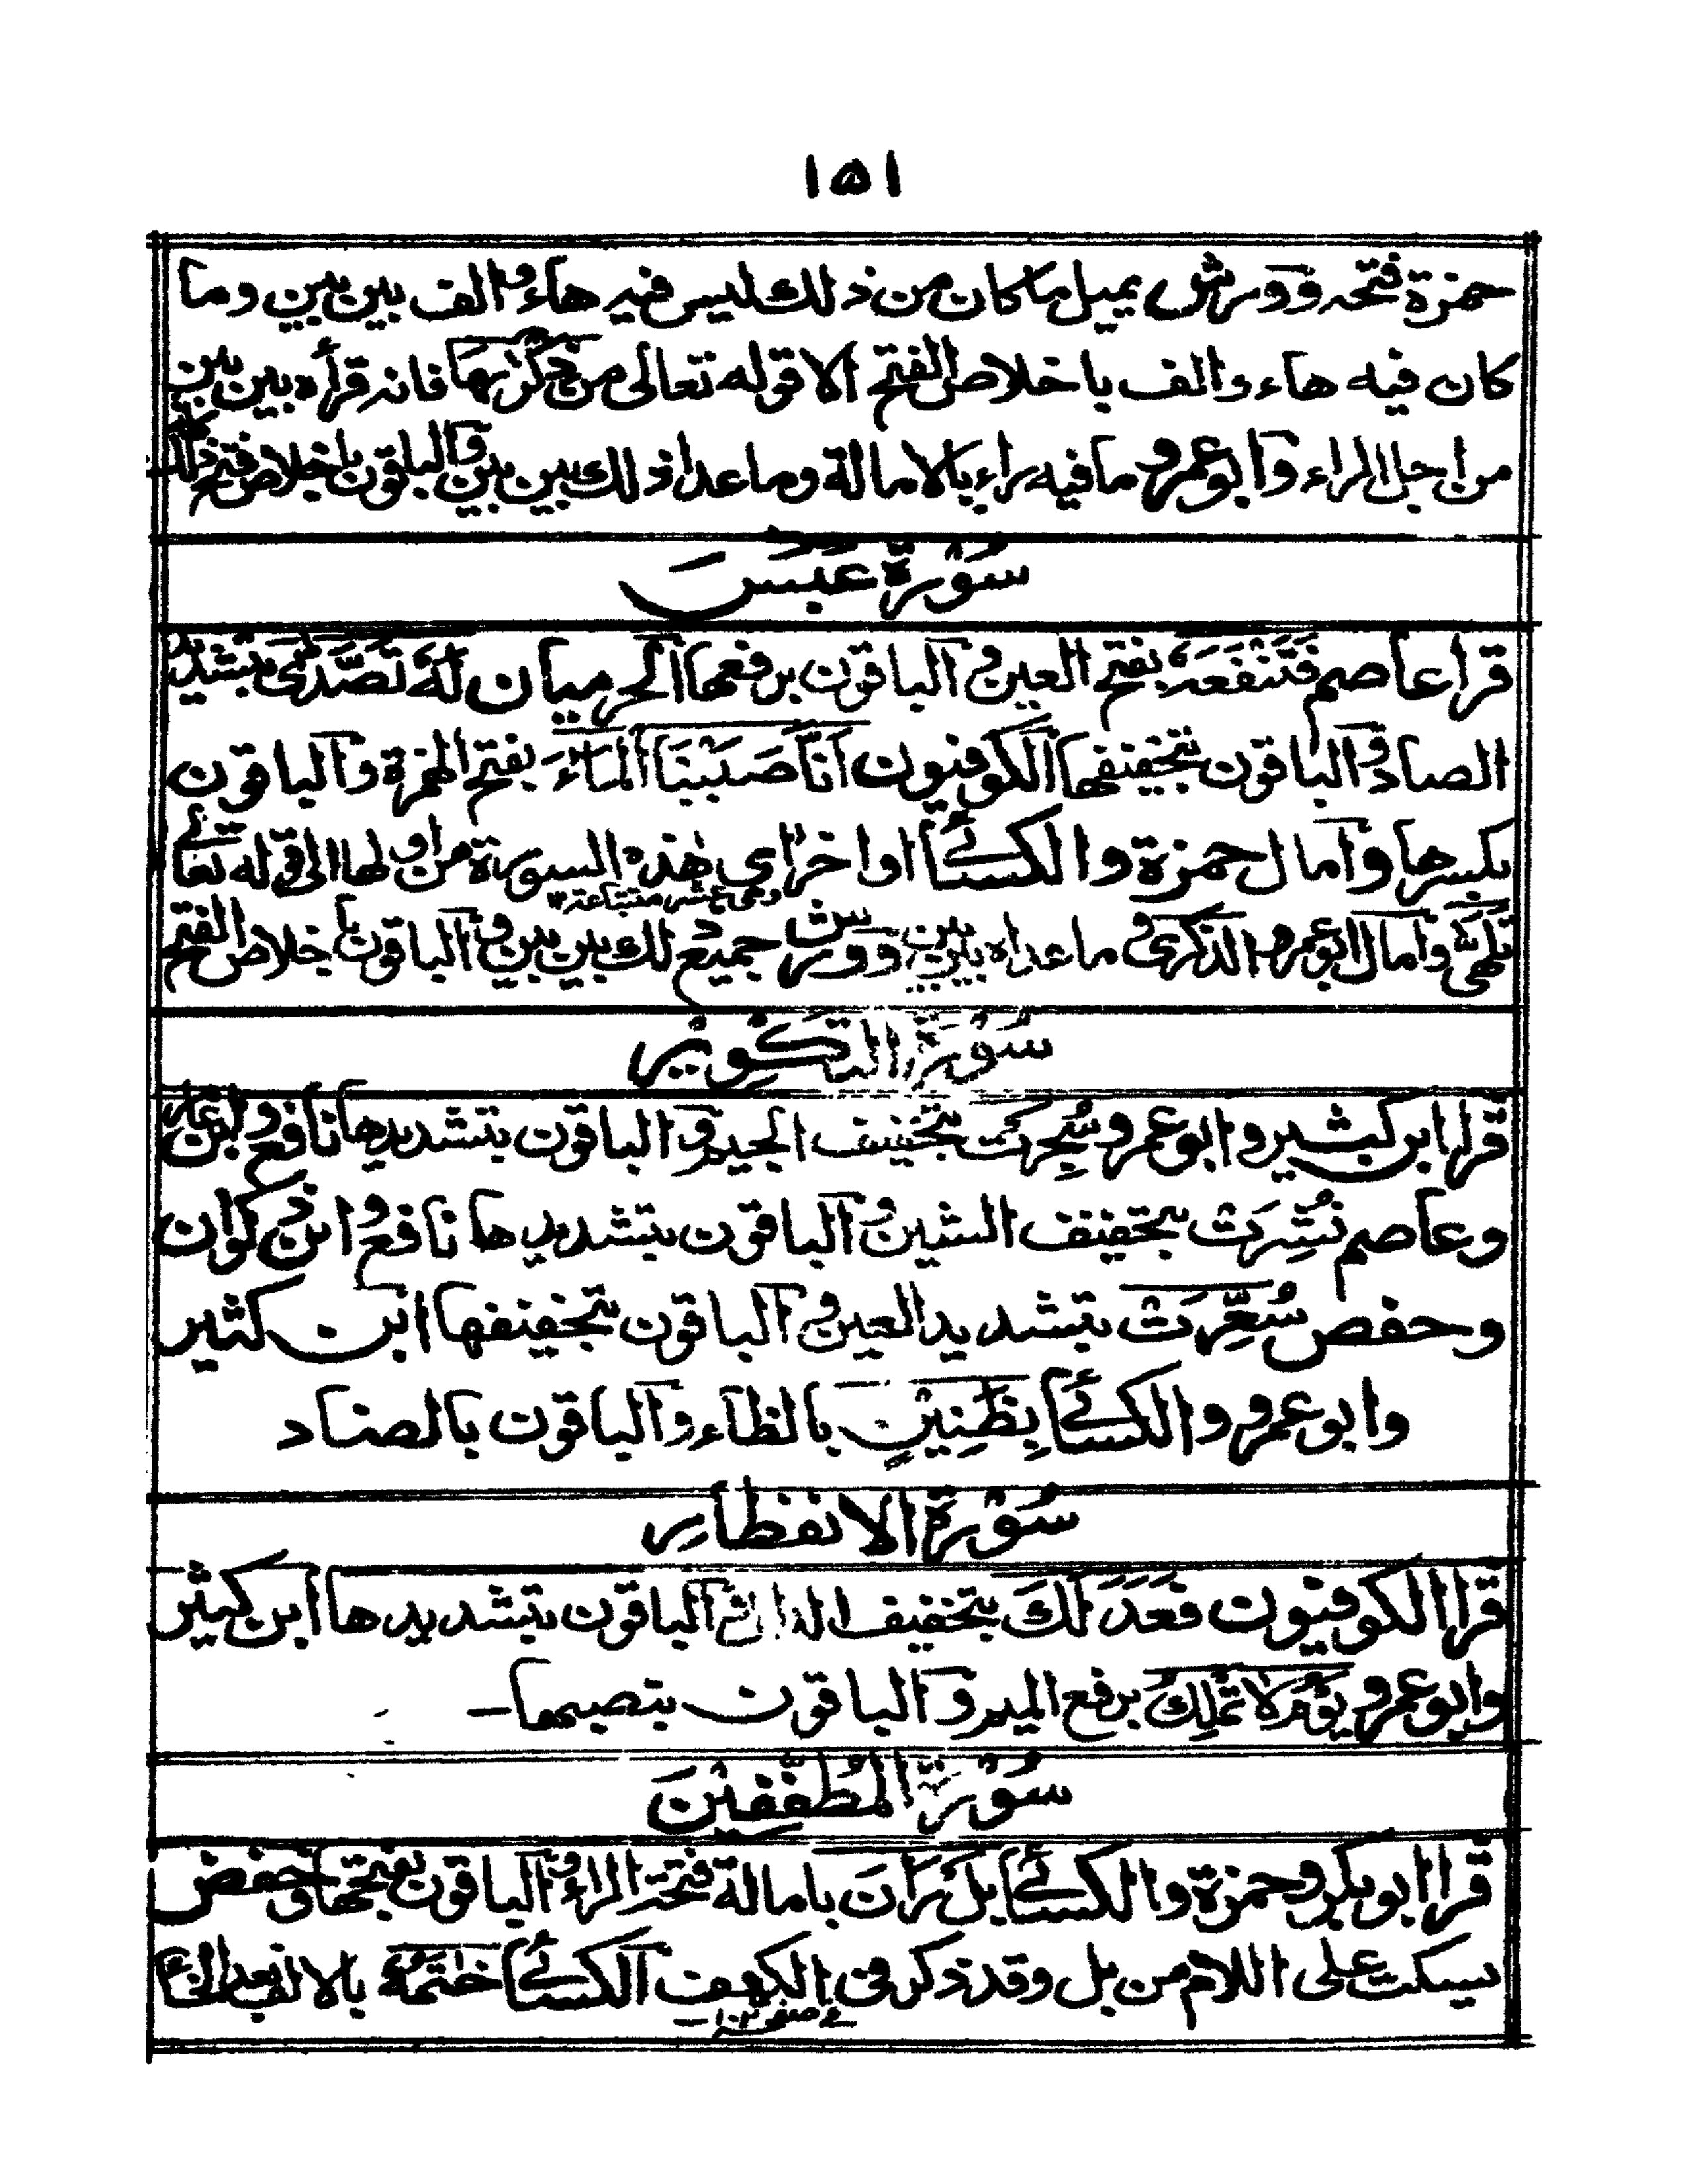 ١٥١
حمزة فتحه وورش يميل ما كان من ذلك ليس فيه هاء والف بين بين وما
كان فيه هاء والف باخلاص الفتح الا قوله تعالى من ذكرٰىها فانه قرأه بين بين
من اجل الراء وابو عمرو ما فيه راء بالامالة وما عدا ذلك بين بين والباقون باخلاص فتح ذلك كله
سُوْرَةُ عَبَسَ
قرا عاصم فَتَنْفَعَهُ بفتح العين والباقون برفعها الحرميان لَهُ تَصَّدّٰى بتشديد
الصاد والباقون بتخفيفها الكوفيون اَنَّا صَبَبْنَا الْمَاءَ بفتح الهمزة والباقون
بكسرها وامال حمزة والكسائى اواخر اى هذه السورة من اولها الى قوله تعالى
تَلَهّٰى وامال ابو عمرو الذكرى وما عداه بين بين وورش جميع ذلك بين بين والباقون باخلاص الفتح
سُوْرَةُ التَّكْوِيْرِ
قرا ابن كثير وابو عمرو سُجِرَتْ بتخفيف الجيم والباقون بتشديدها نافع وابن عامر
وعاصم نُشِرَتْ بتخفيف الشين والباقون بتشديدها نافع وابن ذكوان
وحفص سُعِّرَتْ بتشديد العين والباقون بتخفيفها ابن كثير
وابو عمرو والكسائى بِظَنِيْنٍ بالظاء والباقون بالضاد
سُوْرَةُ الانفطارِ
قرا الكوفيون فَعَدَلَكَ بتخفيف الدال والباقون بتشديدها ابن كثير
وابو عمرو يَوْمُ لَا تَمْلِكُ برفع الميم والباقون بنصبها
سُوْرَةُ الْمُطَفِّفِيْنَ
قرا ابو بكر وحمزة والكسائى بَلْ رَانَ بامالة فتحة الراء والباقون بفتحها وحفص
يسكت على اللام من بل وقد ذكر فى الكهف الكسائى خٰتَمُهٗ بالالف بعد الخاء